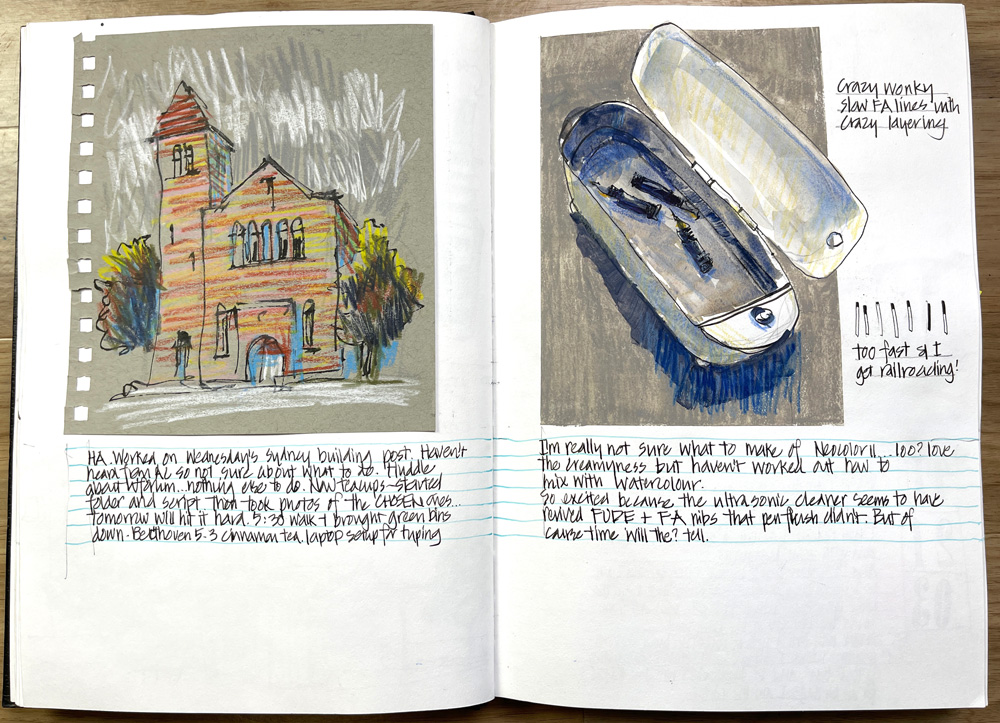 HA. Worked on Wednesday's Sydney building post. Haven't
heard from AC so not sure about what to do.
about nothing else to do. Now teacups - started
folder and script. Then took photos of the CHOSEN ones...
tomorrow will hit it hard. 5:30 walk + brought green bins
down. Beethoven 5.3 cinnamon tea. laptop setup for typing
Crazy wonky
slow FA lines with
crazy layering
too fast so I
got railroading!
I'm really not sure what to make of Neocolor II... 100? love
the creamyness but haven't worked out how to
mix with watercolour.
So excited because the ultrasonic cleaner seems to have
revived FUDE + FA nibs that pen flush didn't. But of
course time will the? tell.